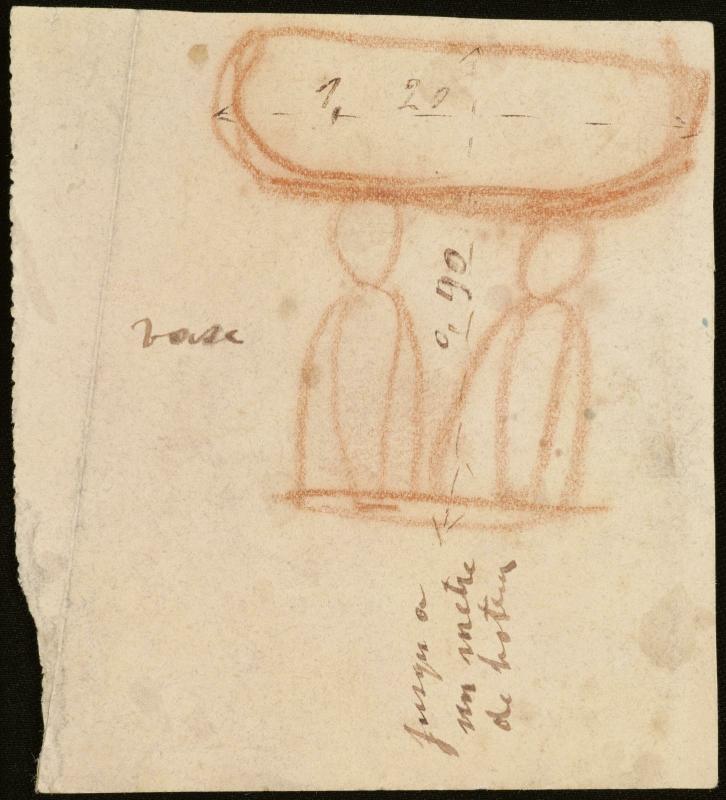 1, 20
0,90
vase
Jusqu a
un metre
de hoteur